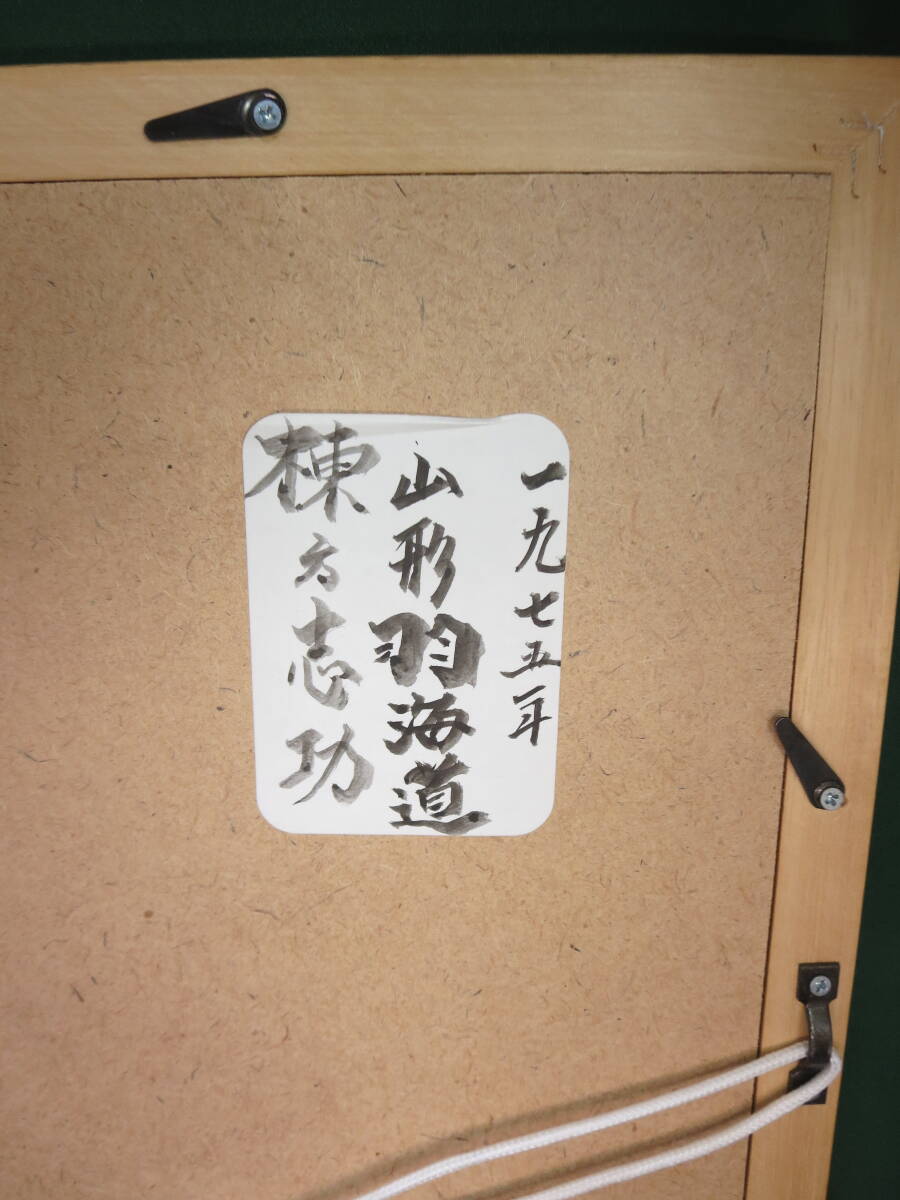 一九七五年
山形羽海道
棟方志功